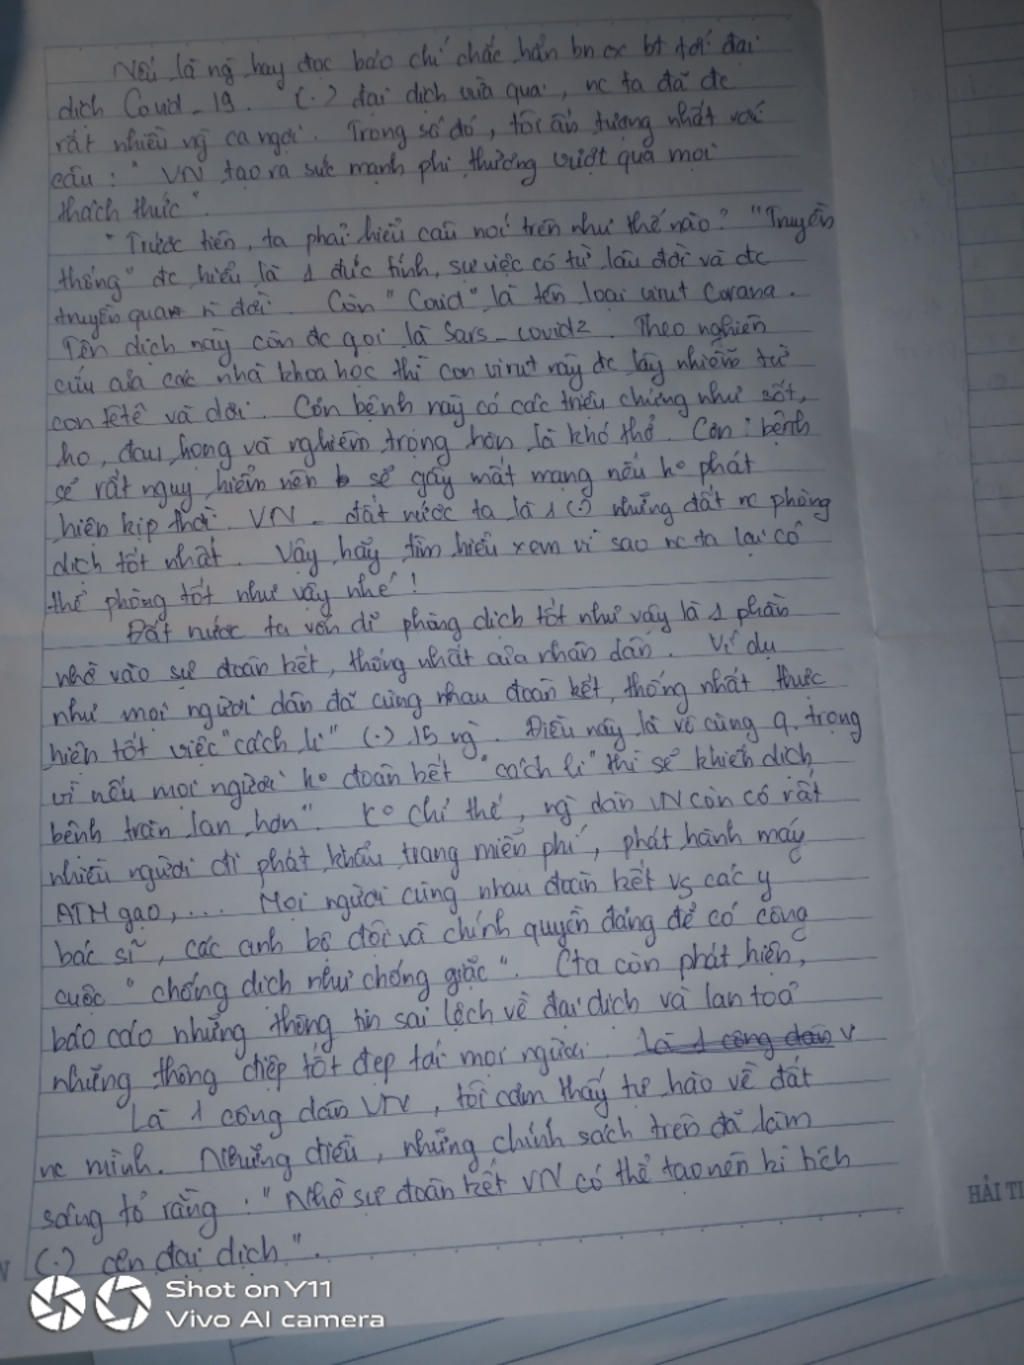 Nếu là ng hay đọc báo chí chắc hẳn bn cx bt tới đại
dịch Covid_19. (.) đại dịch vừa qua, nc ta đã đc
rất nhiều ng ca ngợi. Trong số đó, tôi ấn tượng nhất với
câu: " VN tạo ra sức mạnh phi thường vượt qua mọi
thách thức".
"Trước tiên, ta phải hiểu câu nói trên như thế nào? "Truyền
thống" đc hiểu là 1 đức tính, sự việc có từ lâu đời và đc
truyền qua n đời. Còn "Covid" là tên loại virut Corona.
Tên dịch này còn đc gọi là Sars_covid2. Theo nghiên
cứu của các nhà khoa học thì con virut này đc lây nhiễm từ
con tê tê và dơi. Cơn bệnh này có các triệu chứng như sốt,
ho, đau họng và nghiêm trọng hơn là khó thở. Căn bệnh
sẽ rất nguy hiểm nên sẽ gây mất mạng nếu ko phát
hiện kịp thời. VN _ đất nước ta là 1 (.) những đất nc phòng
dịch tốt nhất. Vậy hãy tìm hiểu xem vì sao nc ta lại có
thể phòng tốt như vậy nhé!
Đất nước ta vốn dĩ phòng dịch tốt như vậy là 1 phần
nhờ vào sự đoàn kết, thống nhất của nhân dân. Ví dụ
như mọi người dân đã cùng nhau đoàn kết, thống nhất thực
hiện tốt việc "cách li" (.) 15 ng. Điều này là vô cùng q. trọng
vì nếu mọi người ko đoàn kết "cách li" thì sẽ khiến dịch
bệnh tràn lan hơn". Ko chỉ thế, ng dân VN còn có rất
nhiều người đi phát khẩu trang miễn phí, phát hành máy
ATM gạo,... Mọi người cùng nhau đoàn kết vs các y
bác sĩ, các anh bộ đội và chính quyền đảng để có công
cuộc "chống dịch như chống giặc". Cta còn phát hiện,
báo cáo những thông tin sai lệch về đại dịch và lan toả
những thông điệp tốt đẹp tới mọi người. Là 1 công dân V
Là 1 công dân VN, tôi cảm thấy tự hào về đất
nc mình. Những điều, những chính sách trên đã làm
sáng tỏ rằng: "Nhờ sự đoàn kết VN có thể tạo nên kì tích
(.) cơn đại dịch".
HẢI TI
Shot on Y11
Vivo AI camera